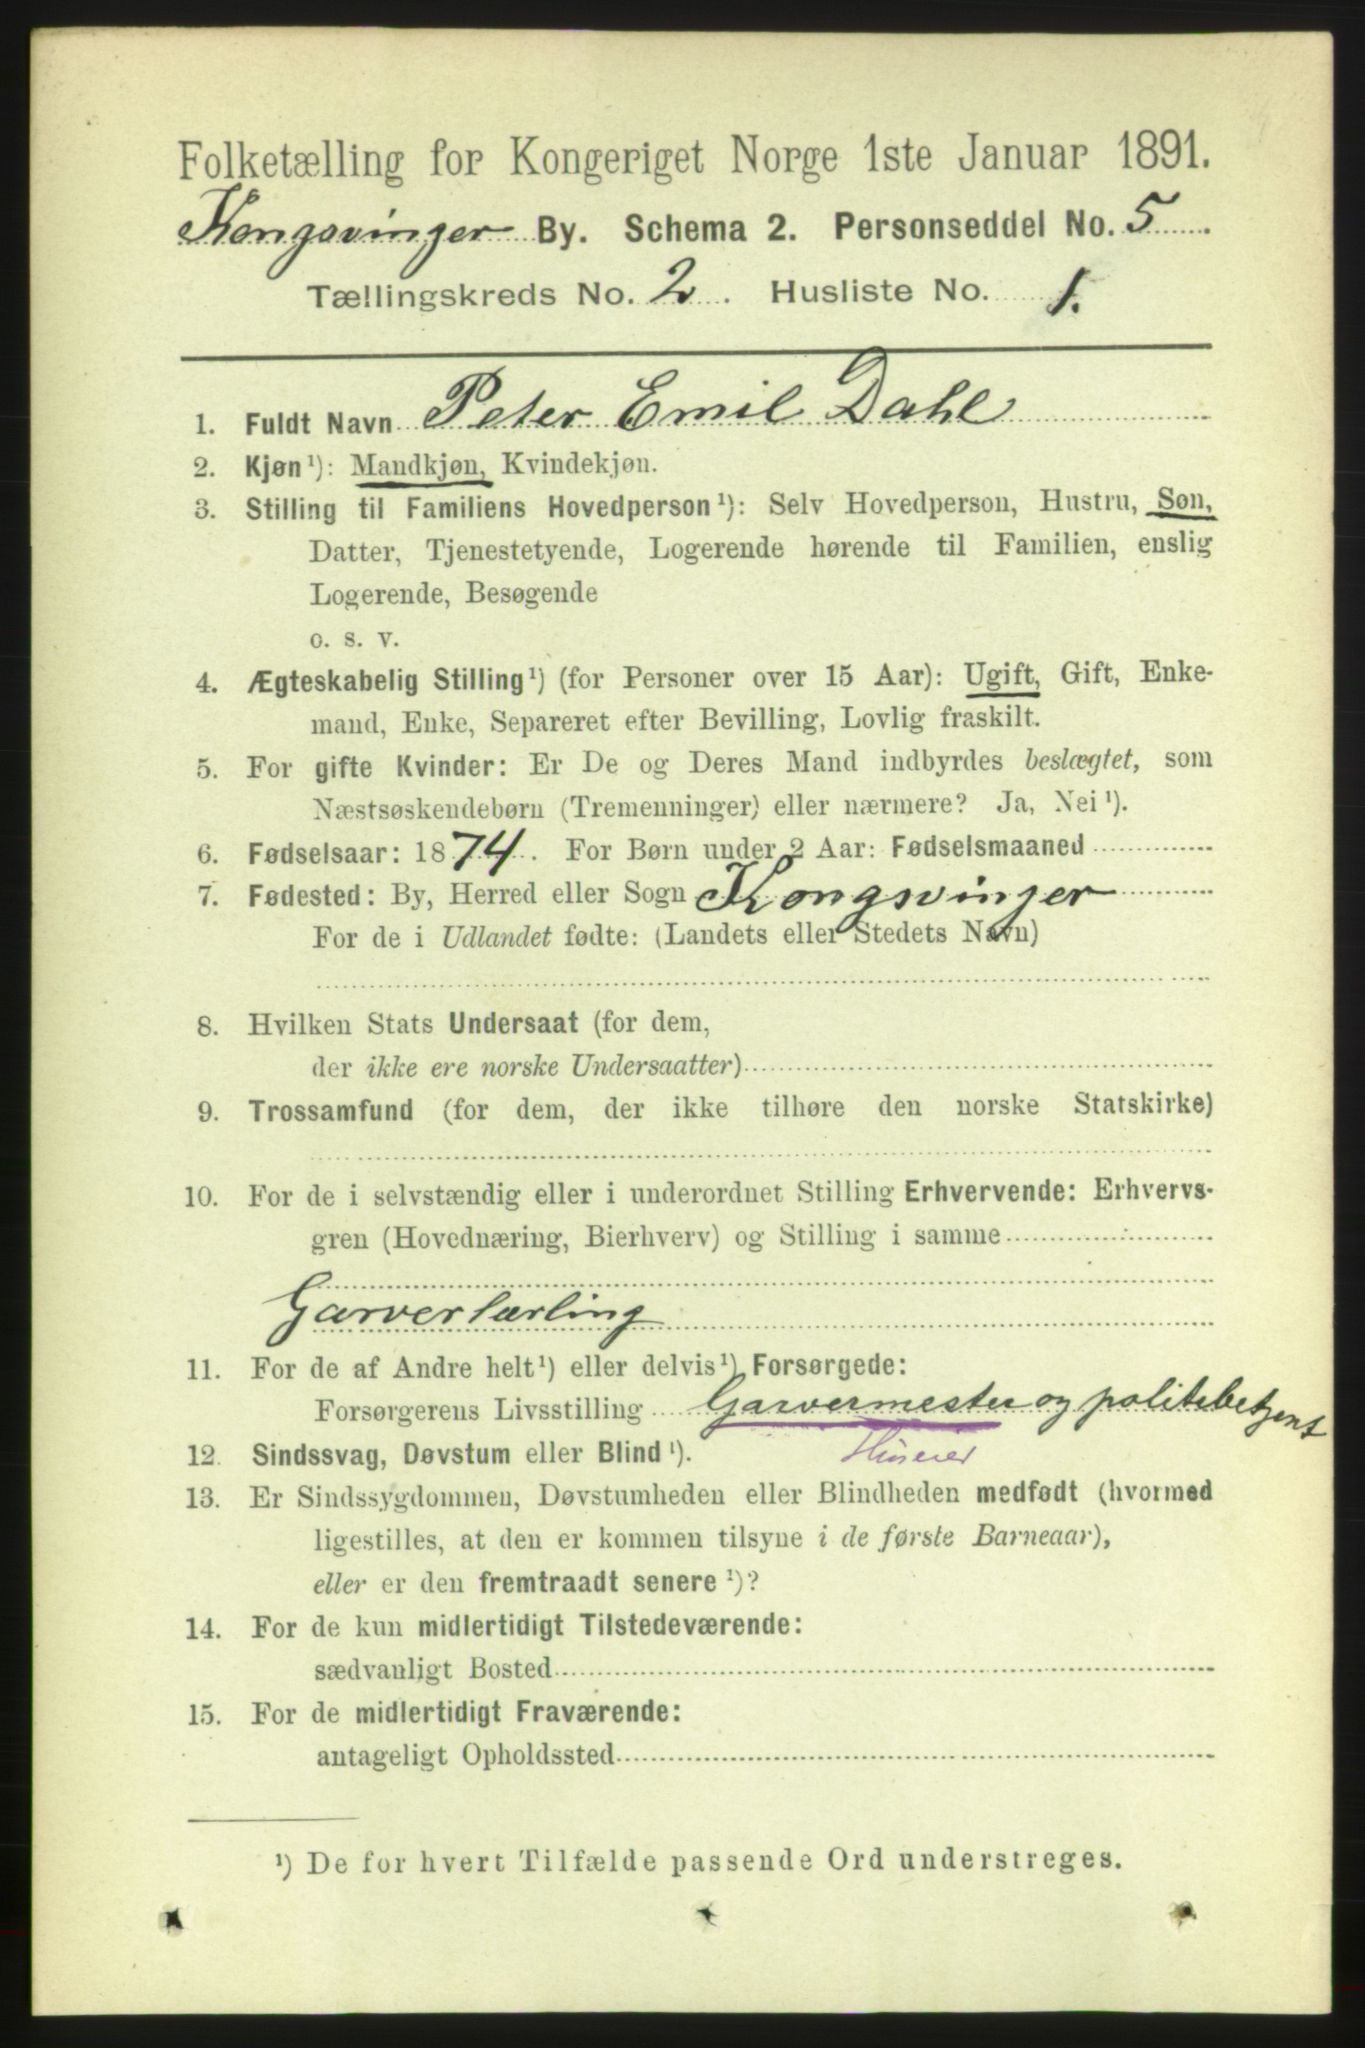 Folketælling for Kongeriget Norge 1ste Januar 1891.
Kongsvinger By. Schema 2. Personseddel No. 5
Tællingskreds No. 2. Husliste No. 1.
1. Fuldt Navn Peter Emil Dahl
2. Kjøn ¹): Mandkjøn, Kvindekjøn.
3. Stilling til Familiens Hovedperson ¹): Selv Hovedperson, Hustru, Søn,
Datter, Tjenestetyende, Logerende hørende til Familien, enslig
Logerende, Besøgende
o. s. v.
4. Ægteskabelig Stilling ¹) (for Personer over 15 Aar): Ugift, Gift, Enke-
mand, Enke, Separeret efter Bevilling, Lovlig fraskilt.
5. For gifte Kvinder: Er De og Deres Mand indbyrdes beslægtet, som
Næstsøskendebørn (Tremenninger) eller nærmere? Ja, Nei ¹).
6. Fødselsaar: 1874. For Børn under 2 Aar: Fødselsmaaned
7. Fødested: By, Herred eller Sogn Kongsvinger
For de i Udlandet fødte: (Landets eller Stedets Navn)
8. Hvilken Stats Undersaat (for dem,
der ikke ere norske Undersaatter)
9. Trossamfund (for dem, der ikke tilhøre den norske Statskirke)
10. For de i selvstændig eller i underordnet Stilling Erhvervende: Erhvervs-
gren (Hovednæring, Bierhverv) og Stilling i samme
Garverlærling
11. For de af Andre helt ¹) eller delvis ¹) Forsørgede:
Forsørgerens Livsstilling Garvermester og politibetjent
Huseier
12. Sindssvag, Døvstum eller Blind ¹).
13. Er Sindssygdommen, Døvstumheden eller Blindheden medfødt (hvormed
ligestilles, at den er kommen tilsyne i de første Barneaar),
eller er den fremtraadt senere ¹)?
14. For de kun midlertidigt Tilstedeværende:
sædvanligt Bosted
15. For de midlertidigt Fraværende:
antageligt Opholdssted
¹) De for hvert Tilfælde passende Ord understreges.